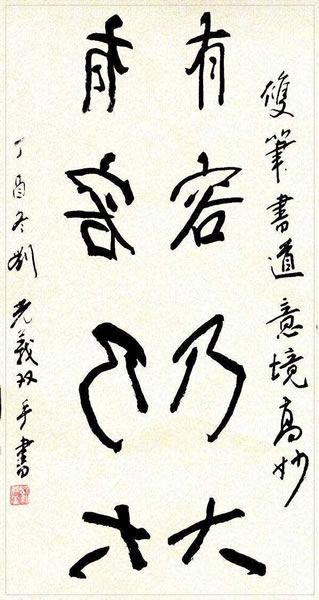 雙筆書道意境高妙
有容乃大
有容乃大
丁酉冬劉光義双手書